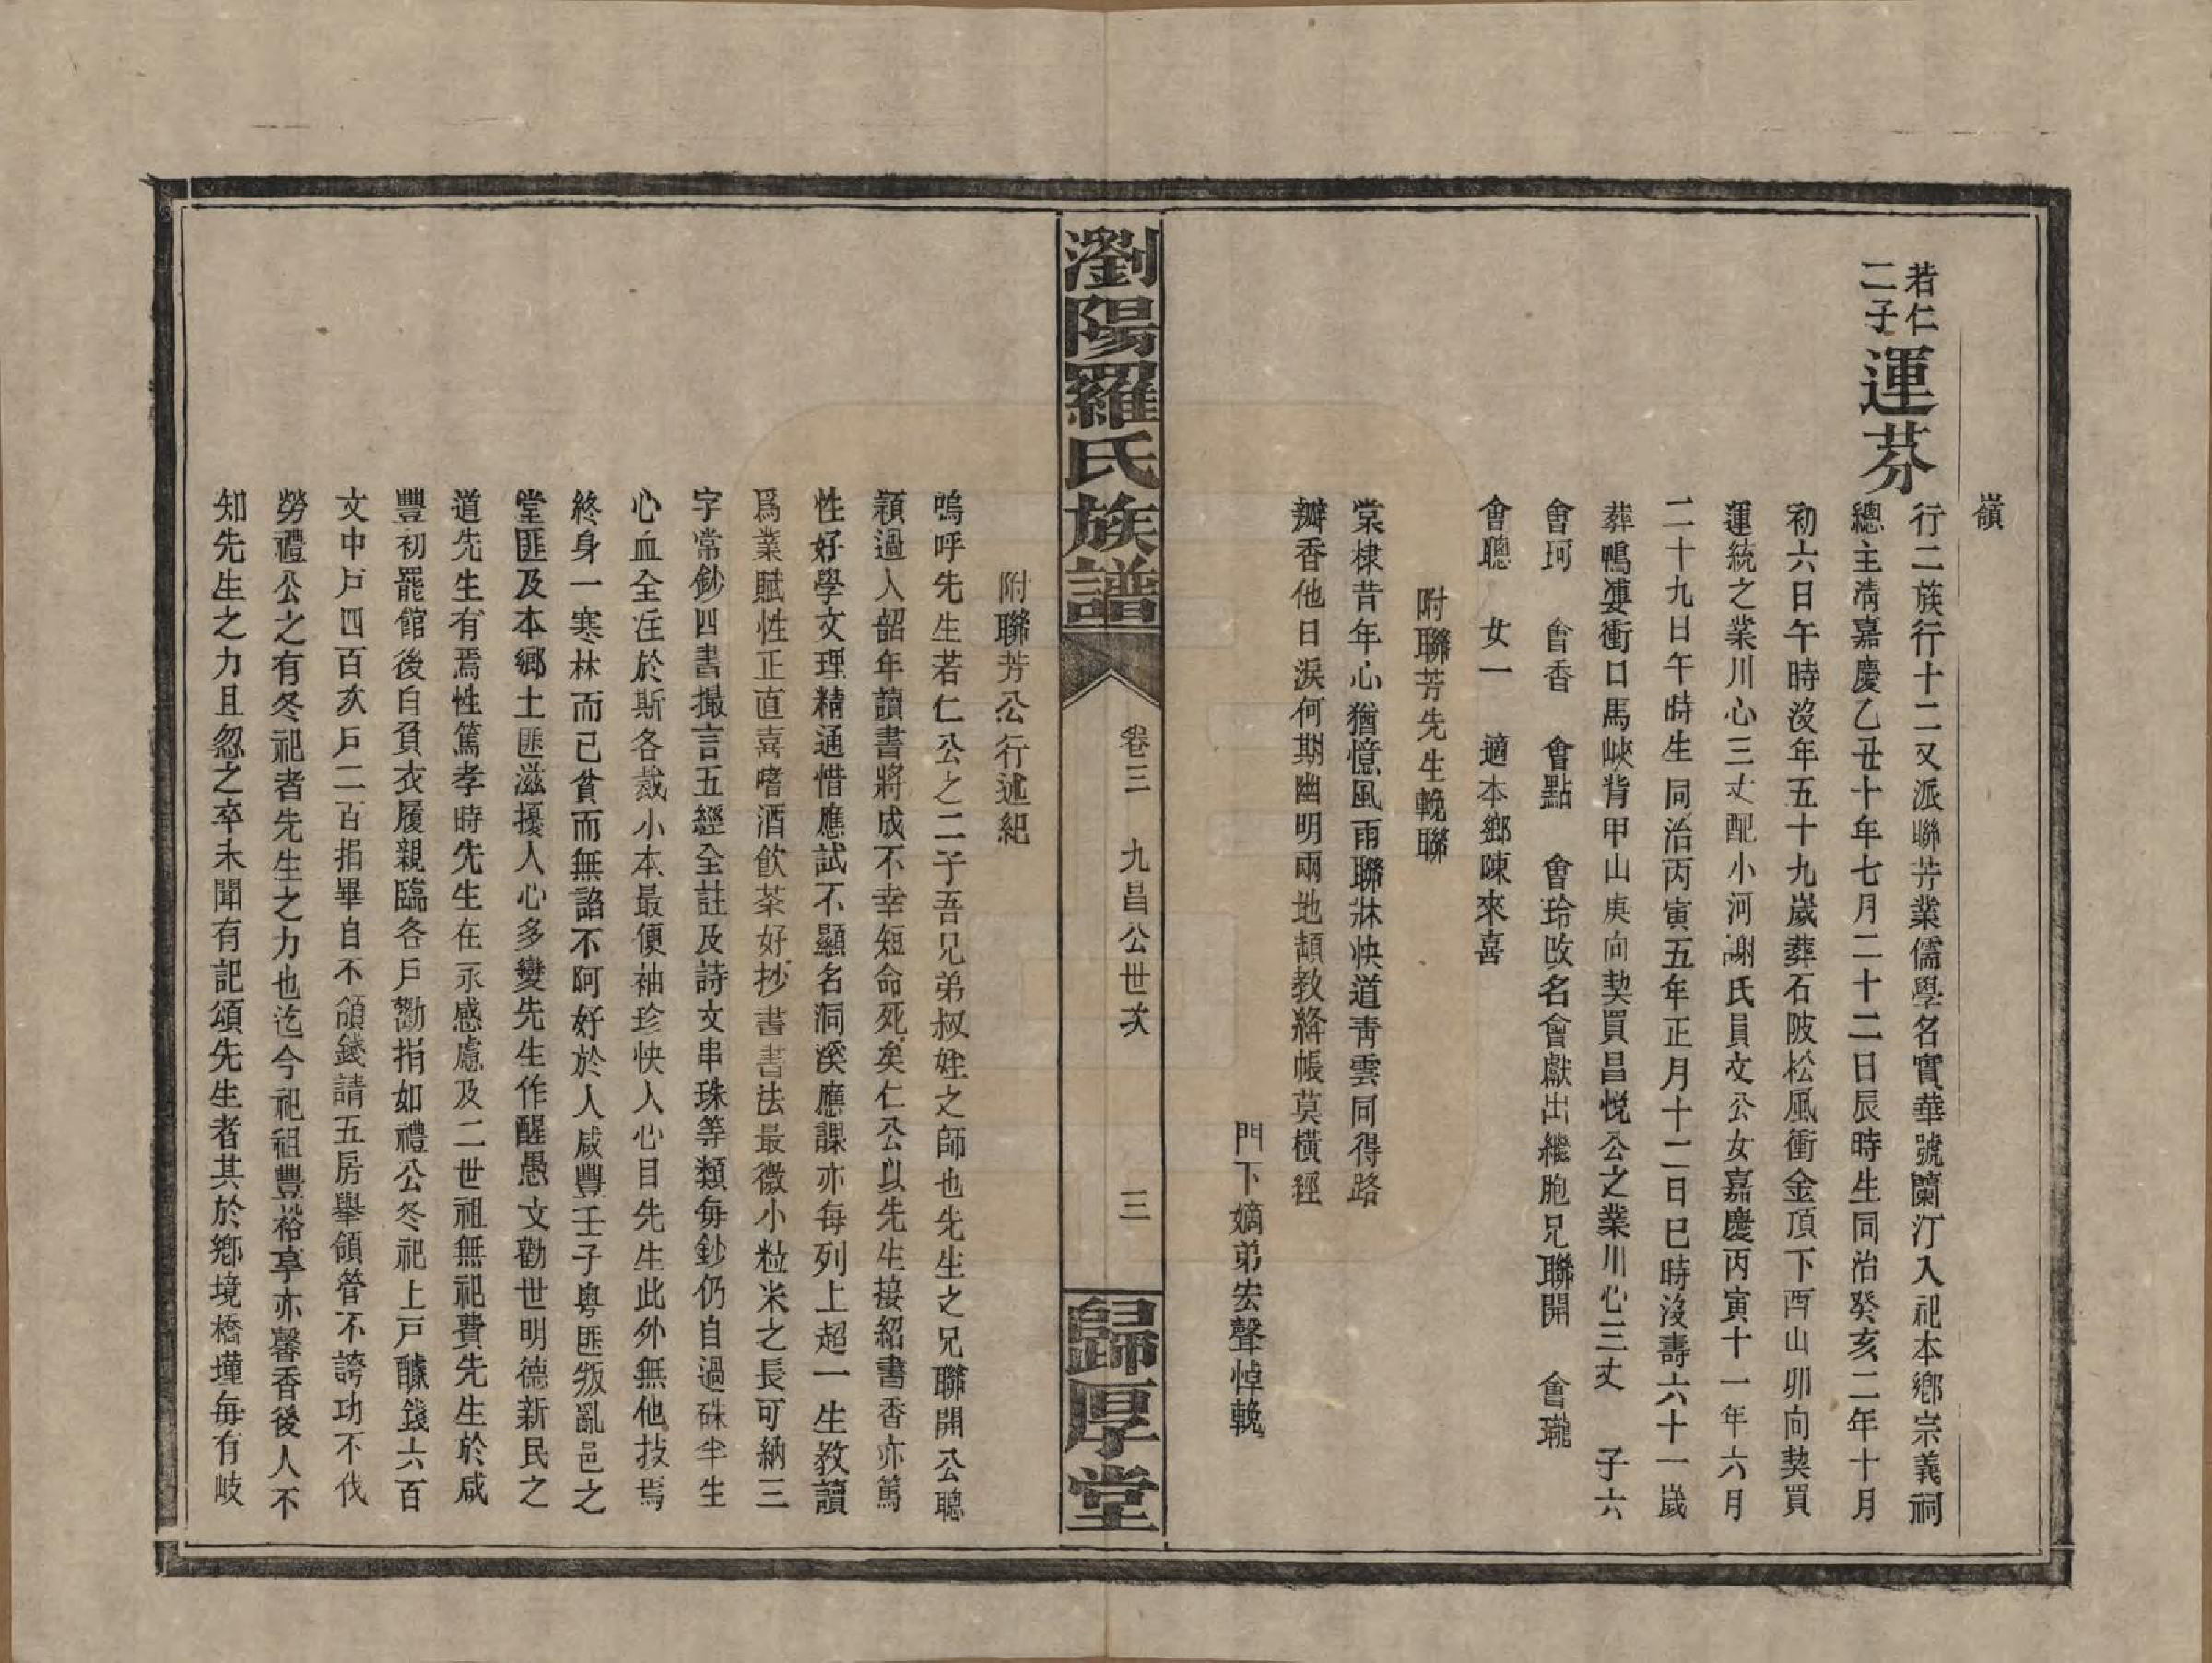 嶺
若仁
二子
運芬
行二族行十二又派聯芳業儒學名實華號蘭汀入祀本鄉宗義祠
總主清嘉慶乙丑十年七月二十二日辰時生同治癸亥二年十月
初六日午時沒年五十九歲葬石陂松風衝金頂下酉山卯向契買
運統之業川心三丈配小河謝氏員文公女嘉慶丙寅十一年六月
二十九日午時生同治丙寅五年正月十二日巳時沒壽六十一歲
葬鴨婆衝口馬峽背甲山庚向契買昌悅公之業川心三丈 子六
會珂 會香 會點 會玲改名會獻出繼胞兄聯開 會瓏
會聰 女一 適本鄉陳來喜
附聯芳先生輓聯
棠棣昔年心猶憶風雨聯牀快道青雲同得路
瓣香他日淚何期幽明兩地頡教絳帳莫橫經
門下嫡弟宏聲悼輓
瀏陽羅氏族譜 卷三 九昌公世次 三 歸厚堂
附聯芳公行述紀
嗚呼先生若仁公之二子吾兄弟叔姪之師也先生之兄聯開公聰
穎過人韶年讀書將成不幸短命死矣仁公以先生接紹書香亦篤
性好學文理精通惜應試不顯名洞溪應課亦每列上超一生教讀
爲業賦性正直喜嗜酒飲茶好抄書書法最微小粒米之長可納三
字常鈔四書撮言五經全註及詩文串珠等類每鈔仍自過硃半生
心血全注於斯各裁小本最便袖珍快人心目先生此外無他技焉
終身一寒林而已貧而無諂不阿好於人咸豐壬子粵匪叛亂邑之
堂匪及本鄉土匪滋擾人心多變先生作醒愚文勸世明德新民之
道先生有焉性篤孝時先生在永感慮及二世祖無祀費先生於咸
豐初罷館後自負衣履親臨各戶勸捐如禮公冬祀上戶醵錢六百
文中戶四百次戶二百捐畢自不領錢請五房舉領管不誇功不伐
勞禮公之有冬祀者先生之力也迄今祀祖豐裕享亦馨香後人不
知先生之力且忽之卒未聞有記頌先生者其於鄉境橋墐每有岐